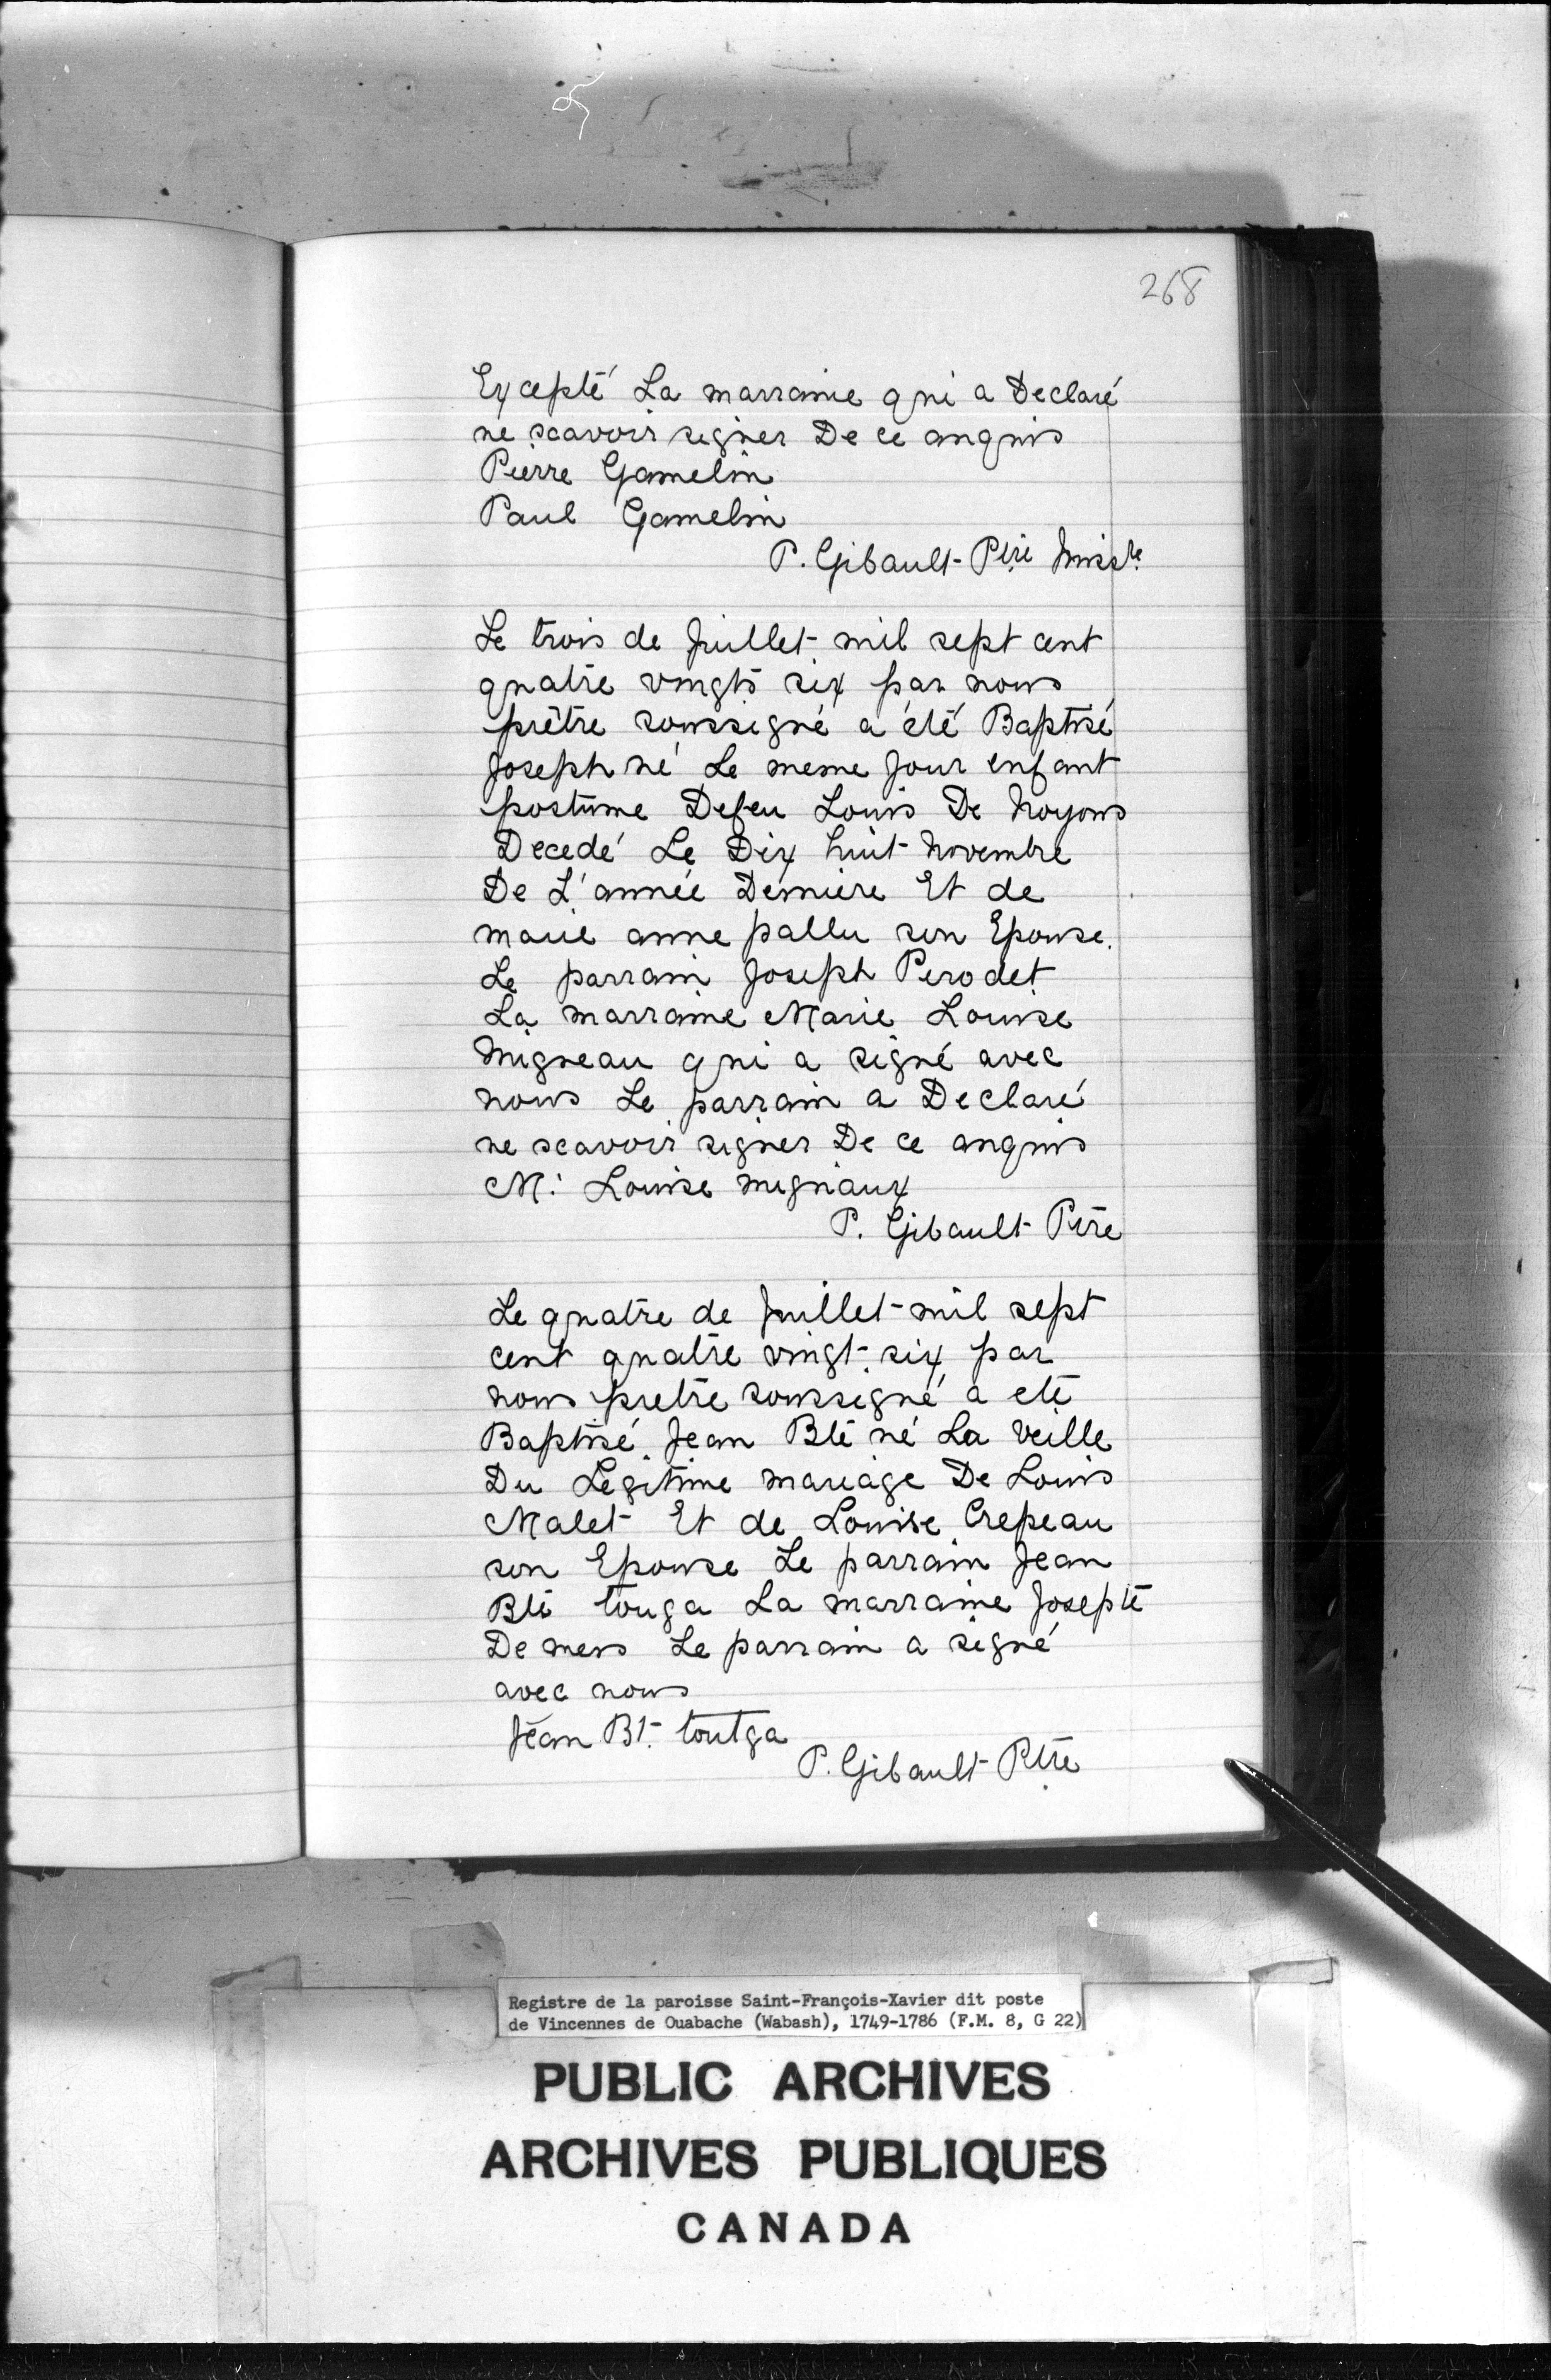 268
Excepté La marraine qui a Declaré
ne scavoir signer De ce anquis
Pierre Gamelin
Paul Gamelin
P. Gibault Ptre Missre
Le trois de Juillet mil sept cent
quatre vingts six par nous
prêtre soussigné a été Baptisé
Joseph né Le meme Jour enfant
postume Defeu Louis De Noyons
Decedé Le Dix huit Novembre
De L'année Derniere Et de
marie anne pallu son Epouse.
Le parrain Joseph Perodet
La marraine Marie Louise
Migneau qui a signé avec
nous Le parrain a Declaré
ne scavoir signer De ce anquis
M: Louise mignaux
P. Gibault Ptre
Le quatre de Juillet mil sept
cent quatre vingt six par
nous pretre soussigné a eté
Baptisé Jean Bte né La Veille
Du Legitime mariage De Louis
Malet Et de Louise Crepeau
son Epouse Le parrain Jean
Bte touga La marraine Josepte
De mers Le parrain a signé
avec nous
Jean Bt. toutga
P. Gibault Ptre
Registre de la paroisse Saint-François-Xavier dit poste
de Vincennes de Ouabache (Wabash), 1749-1786 (F.M. 8, G 22)
PUBLIC ARCHIVES
ARCHIVES PUBLIQUES
CANADA